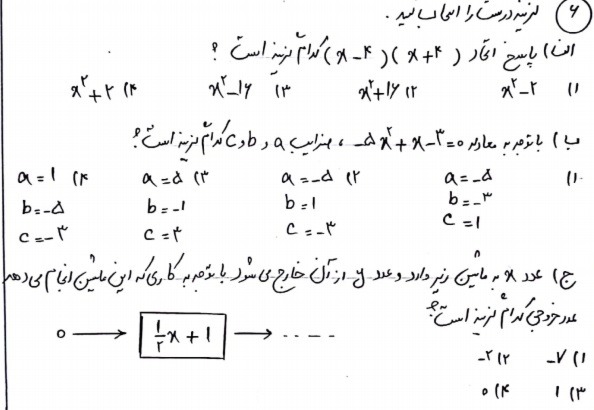 ۶ گزینه درست را انتخاب کنید .
الف) پاسخ اتحاد (x-۴)(x+۴) کدام گزینه است ؟
۱) x²-۲ ۲) x²+۱۶ ۳) x²-۱۶ ۴) x²+۲
ب) باتوجه به معادله -۵x²+x-۳=۰ ، ضرایب a و b و c کدام گزینه است؟
۱) a=-۵ ۲) a=-۵ ۳) a=۵ ۴) a=۱
b=-۳ b=۱ b=-۱ b=-۵
c=۱ c=-۳ c=۳ c=-۳
ج) عدد x به ماشین زیر وارد و عدد y از آن خارج می شود با توجه به کاری که این ماشین انجام می دهد
عدد خروجی کدام گزینه است؟
۰ → ۱/۲ x + ۱ → .....
۱) -۷ ۲) -۲
۳) ۱ ۴) ۰